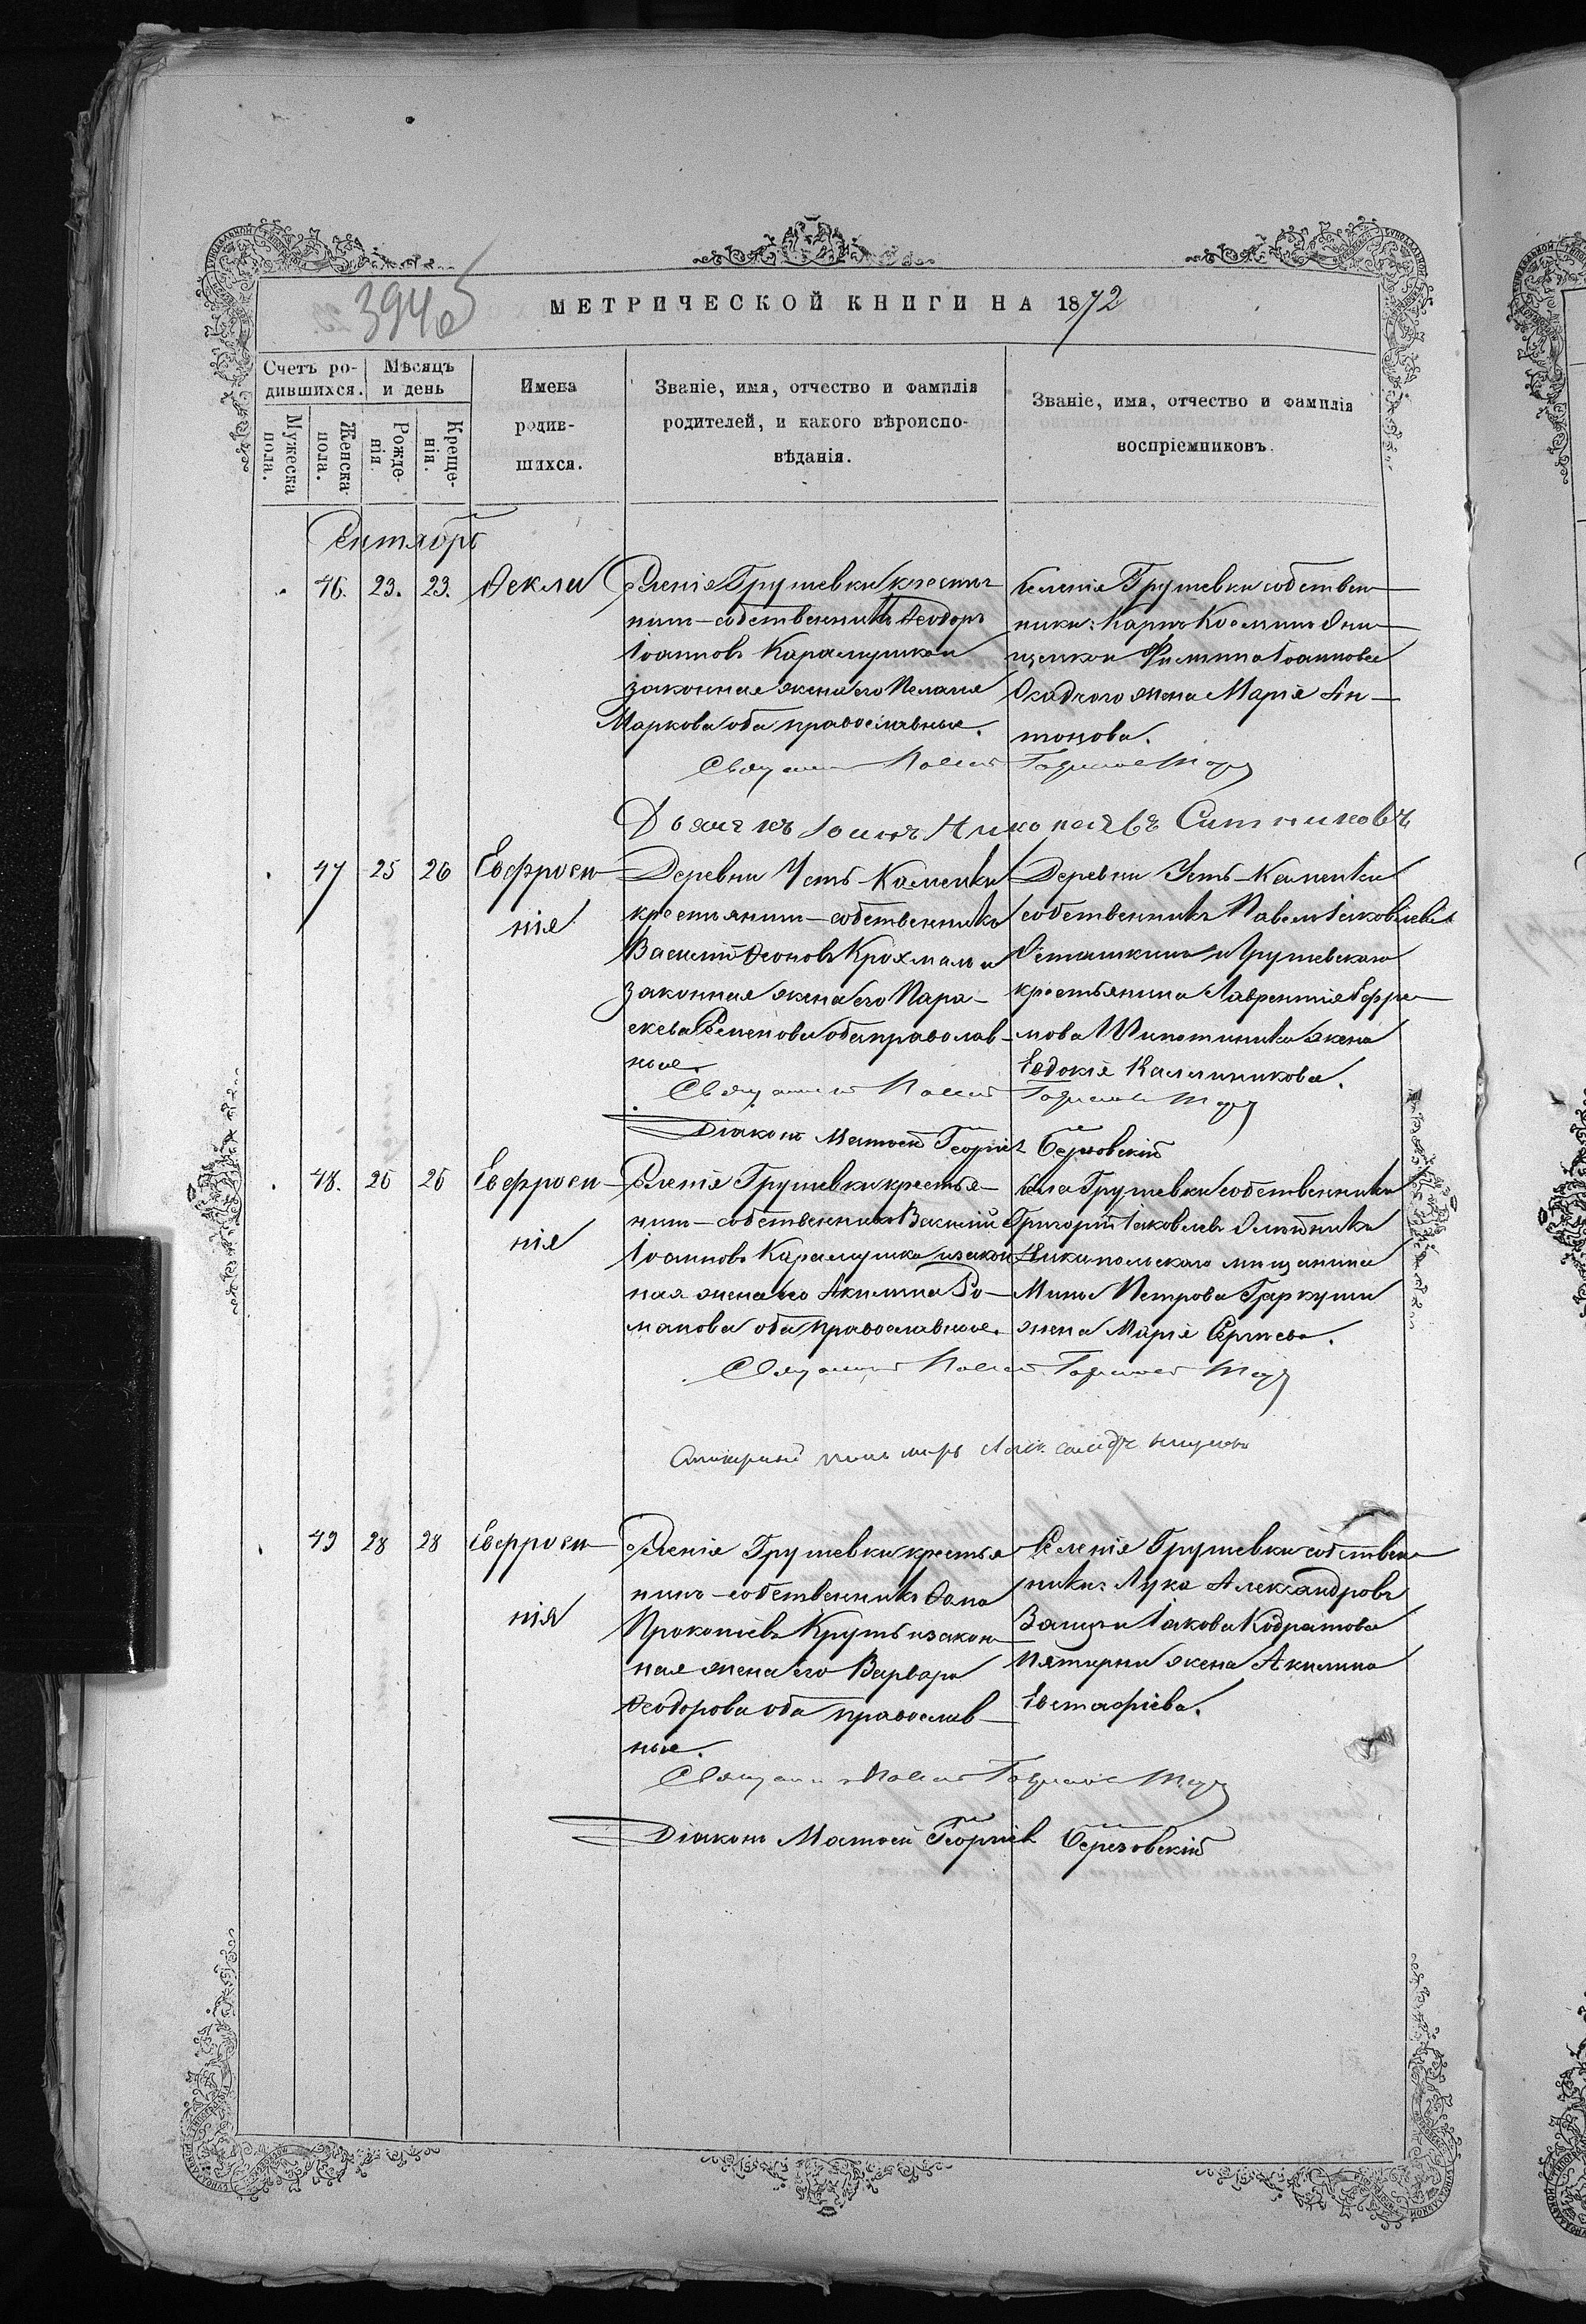 39 об
МЕТРИЧЕСКОЙ КНИГИ НА 1872
Счетъ родившихся.
Мужеска пола.
Женска пола.
Мѣсяцъ и день
Рожденія.
Крещенія.
Имена
родив-
шихся.
Званіе, имя, отчество и фамилія
родителей, и какого вѣроиспо-
вѣданія.
Званіе, имя, отчество и фамилія
воспріемниковъ.
Сентябрь
46. 23. 23. Ѳекли
Селенія Грушевки крестья
нинъ-собственникъ Ѳеодоръ
Іоанновъ Карамушка и
законная жена его Пелагія
Маркова оба православные.
Селенія Грушевки собствен-
ники: Карпъ Космин Они-
щенко и Филиппа Іоаннова
жена Марія Ан-
тонова.
Священникъ
Дьячекъ Іоаннъ Николаевъ Ситниковъ
47 25 26 Евфроси-
нія
Деревни Усть-Каменки
крестьянинъ-собственникъ
Василій Ѳеоновъ Крохмаль и
законная жена его Пара-
скева Семенова оба православ-
ные.
Деревни Усть-Каменки
собственникъ Павелъ Іаковлевъ
Осташкинъ и Грушевскаго
крестьянина Лаврентія Ефре-
мова Шипотинника жена
Евдокія Каллиникова.
Священникъ
Діаконъ Матѳей Георгіев Березовскій
48. 26 26 Евфроси-
нія
Селенія Грушевки крестья-
нинъ-собственникъ Василій
Іоанновъ Карамушка и закон
ная жена его Акилина Ро-
манова оба православные.
Села Грушевки собственникъ
Григорій Іаковлевъ Олейникъ
Никипольскаго мещанина
Мины Петрова Гаркуши
жена Марія Сергиева.
Священникъ
49 28 28 Евфроси-
нія
Селенія Грушевки крестья
нинъ-собственникъ Ѳома
Прокопіевъ Круть и закон-
ная жена его Варвара
Ѳеодорова оба православ-
ные.
Селенія Грушевки собствен-
никъ Лука Александровъ
Заяцъ и Іакова Кодратова
жена Акилина
Евстафіева.
Священникъ
Діаконъ Матѳей Георгіев Березовскій